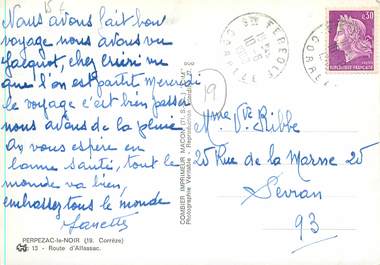 Nous avons fait bon
voyage nous avons vu
Jacquot, chez
que l'on est partit Mercredi
le voyage c'est bien passer
nous avons de la pluie
On vous espère en
bonne santé, tout le
monde va bien,
embrassez tous le monde
Janette
PERPEZAC-le-NOIR (19. Corrèze)
13 - Route d'Allassac.
COMBIER IMPRIMEUR MACON
Photographie Véritable - Reproduction
19
Ste FEREOLE
CORREZE
0,30
REPUBLIQUE FRANÇAISE
Mme Vve Ribbe
25 Rue de la Marne 25
Sevran
93